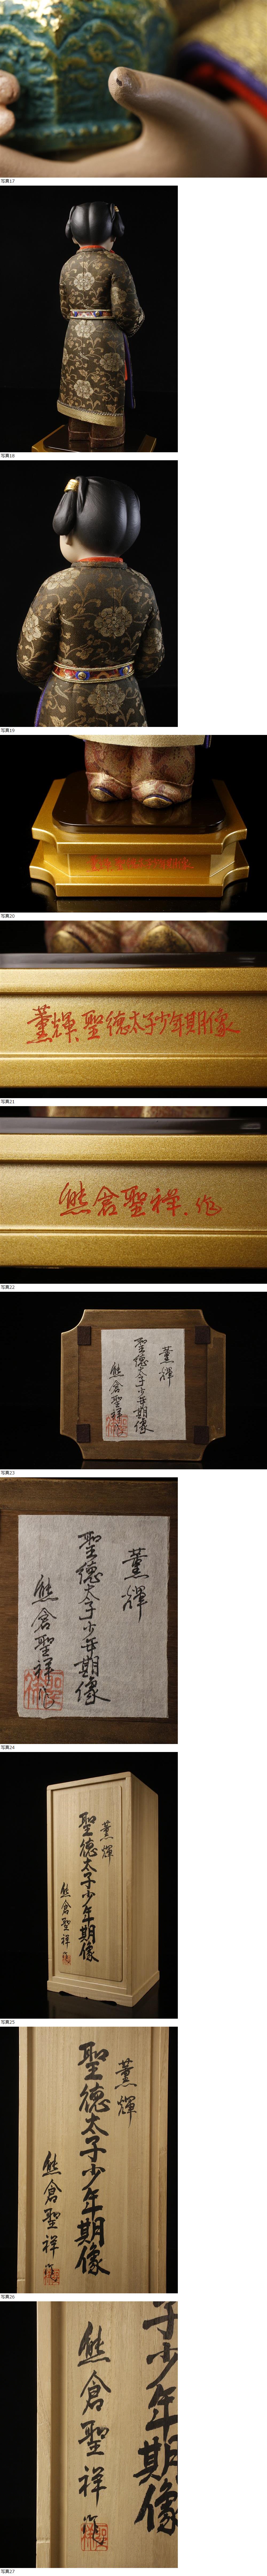 写真17
写真18
写真19
写真20
薫輝、聖徳太子少年期像
写真21
熊倉聖祥、作
写真22
薫輝
聖徳太子少年期像
熊倉聖祥作
写真23
薫輝
聖徳太子少年期像
熊倉聖祥作
写真24
薫輝
聖徳太子少年期像
熊倉聖祥作
写真25
薫輝
聖徳太子少年期像
熊倉聖祥作
写真26
子少年期像
熊倉聖祥作
写真27